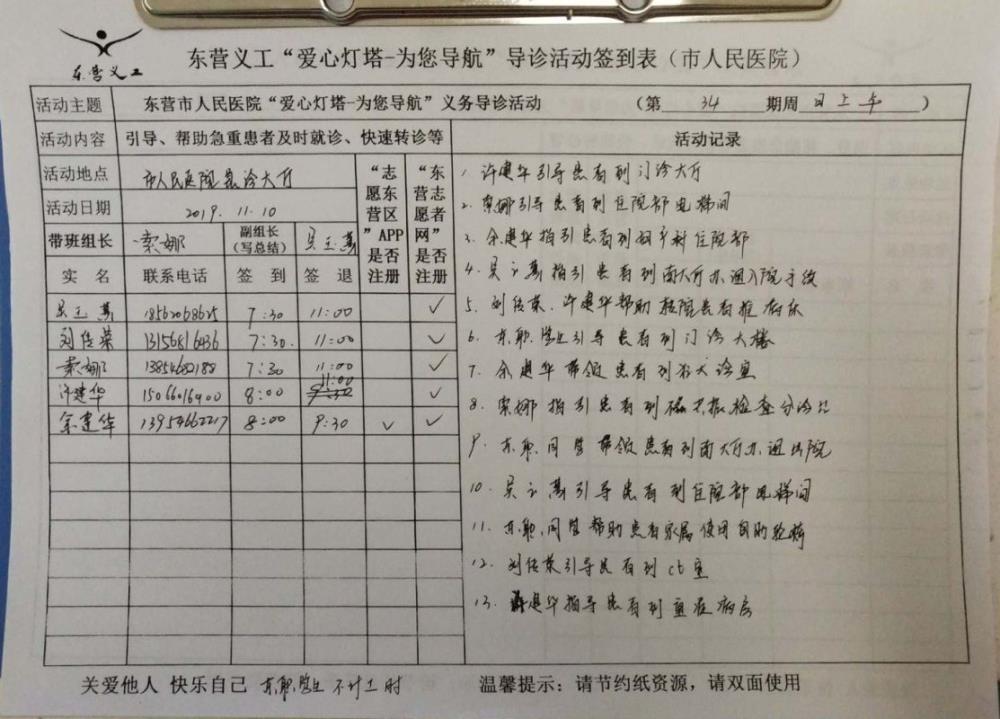 东营义工
东营义工“爱心灯塔-为您导航”导诊活动签到表（市人民医院）
活动主题 东营市人民医院“爱心灯塔-为您导航”义务导诊活动 （第 34 期周 日上午 ）
活动内容 引导、帮助急重患者及时就诊、快速转诊等 活动记录
活动地点 市人民医院急诊大厅 “志愿东营区”APP是否注册 “东营志愿者网”是否注册
活动日期 2019.11.10
带班组长 索娜 副组长（写总结） 吴玉燕
实名 联系电话 签到 签退
吴玉燕 18562068625 7:30 11:00 ✓
刘传荣 13156816436 7:30. 11:00 ✓
索娜 13854682188 7:30 11:00 ✓
许建华 15066016900 8:00 11:00 ✓
余建华 13954662217 8:00 9:30 ✓ ✓
1. 许建华引导患者到门诊大厅
2. 索娜引导患者到住院部电梯间
3. 余建华指引患者到妇产科住院部
4. 吴玉燕指引患者到南大厅办理入院手续
5. 刘传荣、许建华帮助轻院患者推病床
6. 东职学生引导患者到门诊大楼
7. 余建华带领患者到诊室
8. 索娜指引患者到磁共振检查
9. 东职同学带领患者到南大厅办理出院
10. 吴玉燕引导患者到住院部电梯间
11. 东职同学帮助患者家属使用自助轮椅
12. 刘传荣引导患者到ct室
13. 许建华指导患者到重症病房
关爱他人 快乐自己 东职学生不计工时 温馨提示：请节约纸资源，请双面使用